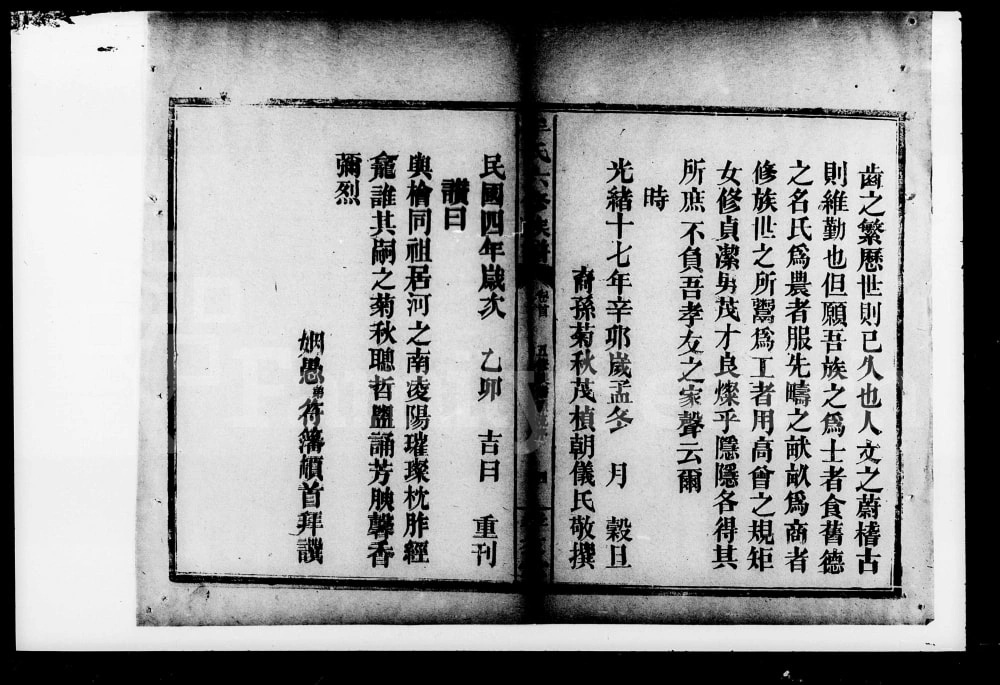 齒之繁歷世則已久也人文之蔚稽古
則維勤也但願吾族之爲士者食舊德
之名氏爲農者服先疇之畝爲商者
修族世之所鬻爲工者用高曾之規矩
女修貞潔男茂才良燦乎隱隱各得其
所庶不負吾孝友之家聲云爾
時
光緒十七年辛卯歲孟冬 月 穀旦
裔孫菊秋茂楨朝儀氏敬撰
氏六修族譜
卷首
四
民國四年歲次 乙卯 吉日 重刊
讚曰
與檜同祖居河之南凌陽璀璨枕胙經
龕誰其嗣之菊秋聰哲盥誦芳腴馨香
彌烈
姻愚弟符藩頓首拜讚